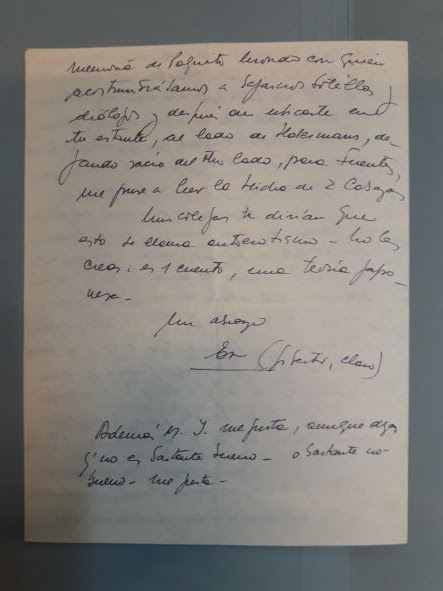 memoria de Paquito Urondo con quien
acostumbrábamos a bajarnos botellas y
diálogos y después de ubicarte en
tu estante, al lado de Habermans, de-
jando vacío del otro lado, para Fuentes,
me puse a leer la de 2 Corazo
Mis colegas te dirían que
esto se llama autoerotismo - No les
creas: es 1 cuento, una teoría japo-
nesa.
Un abrazo
(, claro)
Además M. J. me gusta, aunque diga
q' no es bastante bueno - o bastante no-
bueno - me gusta -